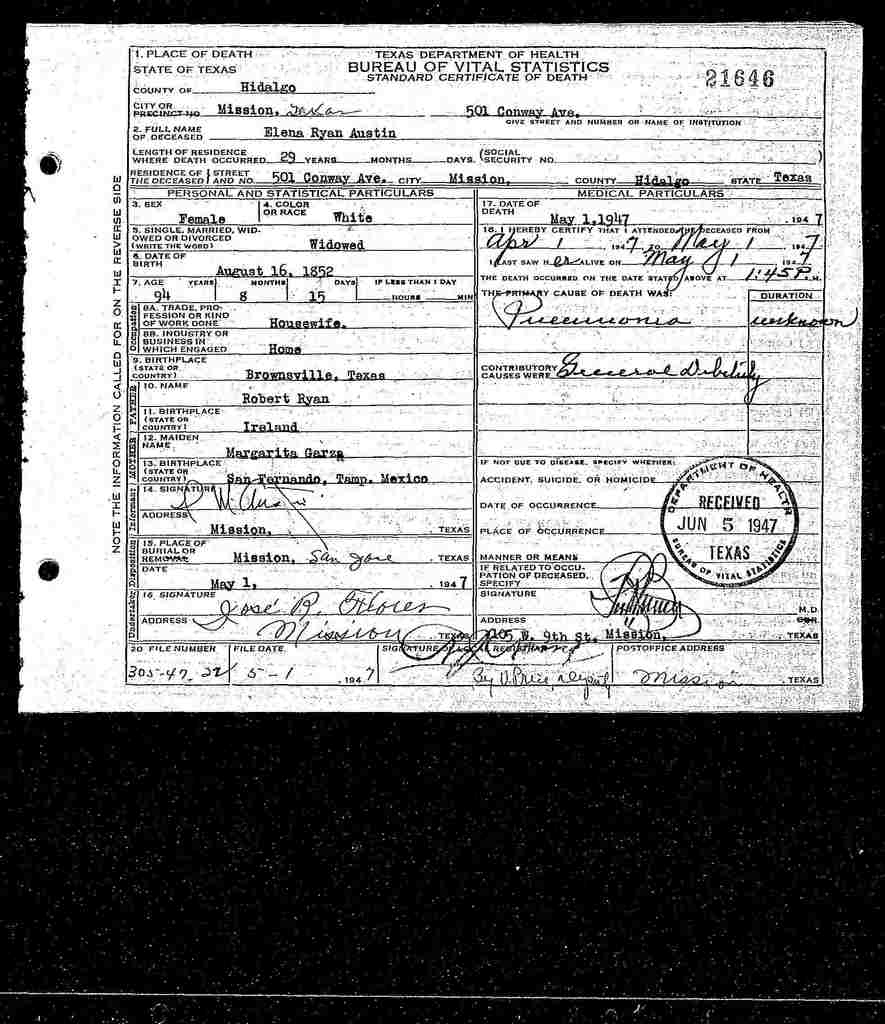 1. PLACE OF DEATH
STATE OF TEXAS
COUNTY OF Hidalgo
TEXAS DEPARTMENT OF HEALTH
BUREAU OF VITAL STATISTICS
STANDARD CERTIFICATE OF DEATH
21646
CITY OR
PRECINCT NO Mission, Texas 501 Conway Ave.
GIVE STREET AND NUMBER OR NAME OF INSTITUTION
2. FULL NAME
OF DECEASED Elena Ryan Austin
LENGTH OF RESIDENCE
WHERE DEATH OCCURRED 29 YEARS MONTHS DAYS (SOCIAL SECURITY NO. )
RESIDENCE OF THE DECEASED STREET AND NO. 501 Conway Ave. CITY Mission, COUNTY Hidalgo STATE Texas
NOTE THE INFORMATION CALLED FOR ON THE REVERSE SIDE
PERSONAL AND STATISTICAL PARTICULARS
3. SEX Female
4. COLOR OR RACE White
5. SINGLE, MARRIED, WIDOWED OR DIVORCED
(WRITE THE WORD) Widowed
6. DATE OF
BIRTH August 16, 1852
7. AGE YEARS MONTHS DAYS IF LESS THAN 1 DAY
94 8 15 HOURS MIN
Occupation
8A. TRADE, PROFESSION OR KIND
OF WORK DONE Housewife.
8B. INDUSTRY OR
BUSINESS IN
WHICH ENGAGED Home
9. BIRTHPLACE
(STATE OR
COUNTRY) Brownsville, Texas
FATHER
10. NAME Robert Ryan
11. BIRTHPLACE
(STATE OR
COUNTRY) Ireland
MOTHER
12. MAIDEN
NAME Margarita Garza
13. BIRTHPLACE
(STATE OR
COUNTRY) San Fernando, Tamp. Mexico
Informant
14. SIGNATURE
ADDRESS Mission, TEXAS
Disposition
15. PLACE OF
BURIAL OR
REMOVAL Mission, San Jose TEXAS
DATE May 1, 1947
Undertaker
16. SIGNATURE José R. Flores
ADDRESS Mission TEXAS
MEDICAL PARTICULARS
17. DATE OF
DEATH May 1, 1947 . 194 7
18. I HEREBY CERTIFY THAT I ATTENDED THE DECEASED FROM
Apr 1 1947 TO May 1 1947
I LAST SAW HER ALIVE ON May 1 1947
THE DEATH OCCURRED ON THE DATE STATED ABOVE AT 1:45 P. M.
THE PRIMARY CAUSE OF DEATH WAS: DURATION
Pneumonia unknown
CONTRIBUTORY
CAUSES WERE General Debility
IF NOT DUE TO DISEASE, SPECIFY WHETHER:
ACCIDENT, SUICIDE, OR HOMICIDE
DATE OF OCCURRENCE
PLACE OF OCCURRENCE
MANNER OR MEANS
DEPARTMENT OF HEALTH
RECEIVED
JUN 5 1947
TEXAS
BUREAU OF VITAL STATISTICS
IF RELATED TO OCCUPATION OF DECEASED,
SPECIFY
SIGNATURE M.D.
ADDRESS 1105 W. 9th St. Mission, TEXAS
20 FILE NUMBER FILE DATE SIGNATURE OF LOCAL REGISTRAR POSTOFFICE ADDRESS
305-47 22 5-1 1947 By V. Price, deputy Mission TEXAS